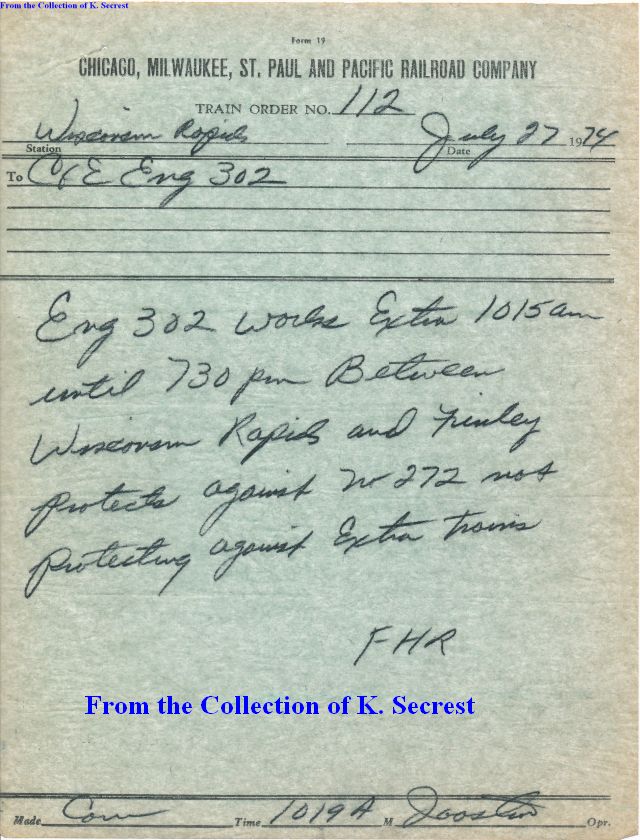 From the Collection of K. Secrest
Form 19
CHICAGO, MILWAUKEE, ST. PAUL AND PACIFIC RAILROAD COMPANY
TRAIN ORDER NO. 112
Wisconsin Rapids July 27 1974
Station Date
To C&E Eng 302
Eng 302 works Extra 1015 am
until 730 pm Between
Wisconsin Rapids and Finley
protects against No 272 not
protecting against Extra trains
FHR
From the Collection of K. Secrest
Made Com Time 1019 A M Opr.